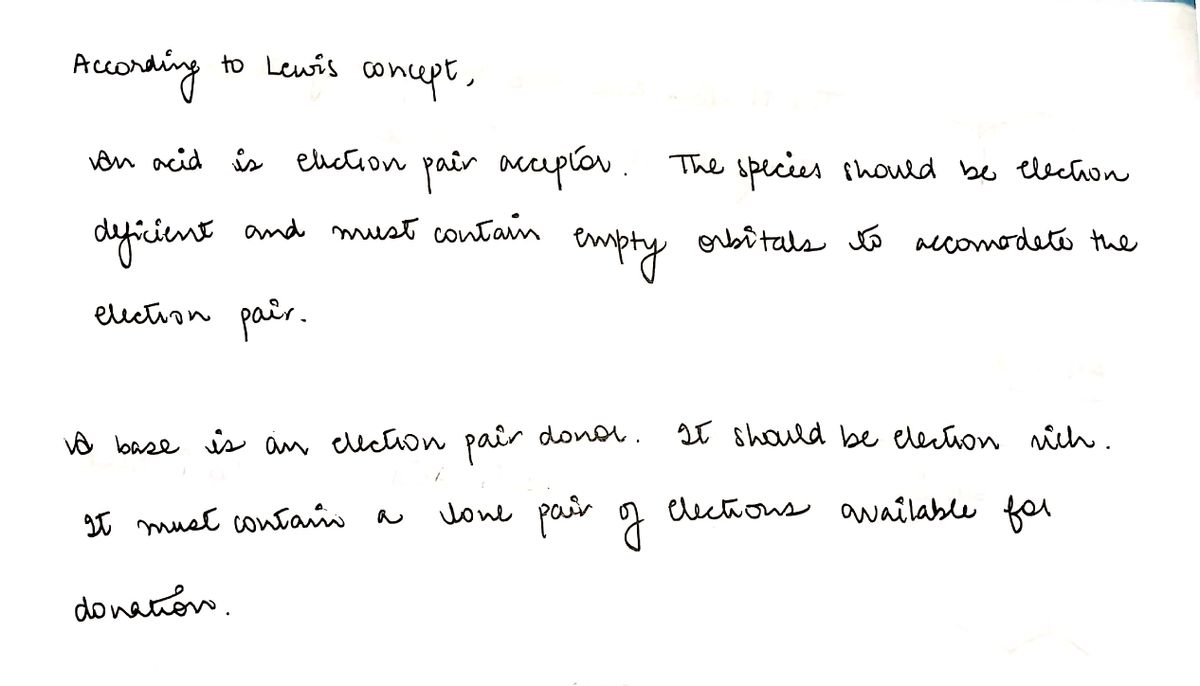 According to Lewis concept,
An acid is electron pair acceptor. The species should be electron
deficient and must contain empty orbitals to accomodate the
electron pair.
A base is an electron pair donor. It should be electron rich.
It must contain a lone pair of electrons available for
donation.